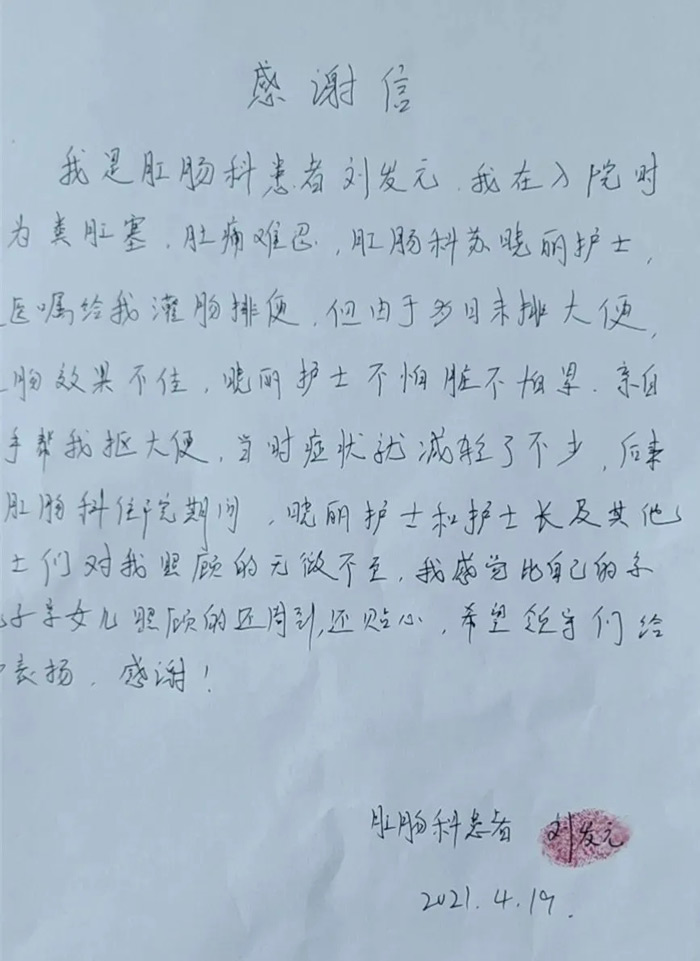 感谢信
我是肛肠科患者刘发元，我在入院时
为粪肛塞，肚痛难忍，肛肠科苏晓丽护士，
医嘱给我灌肠排便，但由于多日未排大便，
肠效果不佳，晓丽护士不怕脏不怕累，亲自
手帮我抠大便，当时症状就减轻了不少，后来
肛肠科住院期间，晓丽护士和护士长及其他
士们对我照顾的无微不至，我感觉比自己的亲
子亲女儿照顾的还周到，还贴心，希望领导们给
表扬，感谢！
肛肠科患者 刘发元
2021.4.19.